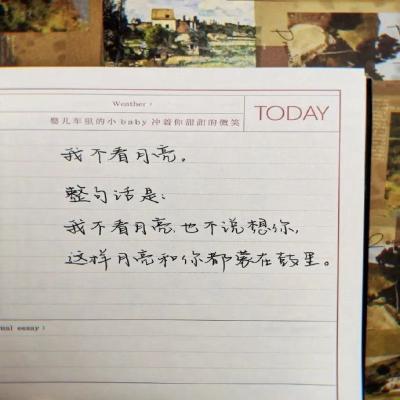 Weather:
婴儿车里的小baby冲着你甜甜的微笑
TODAY
我不看月亮。
整句话是:
我不看月亮,也不说想你,
这样月亮和你都蒙在鼓里。
nal essay: